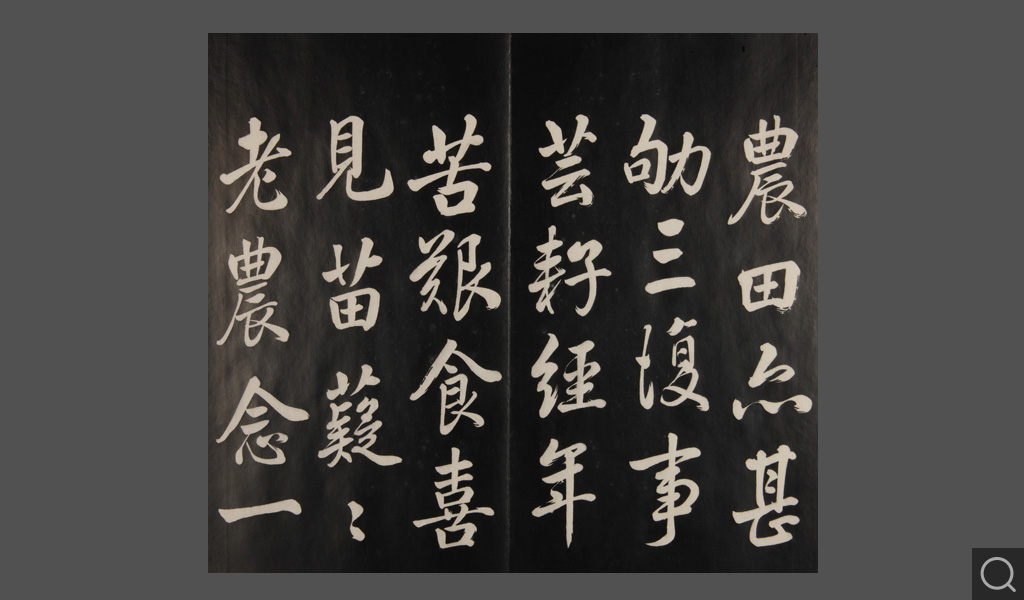 農田亦甚
劬三復事
芸耔經年
苦艱食喜
見苗薿〻
老農念一